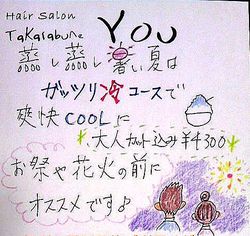 Hair Salon
Takarabune YOU
蒸し蒸し暑い夏は
ガッツリ冷コースで
爽快COOLに
大人カット込み¥4300
お祭や花火の前に
オススメです♪